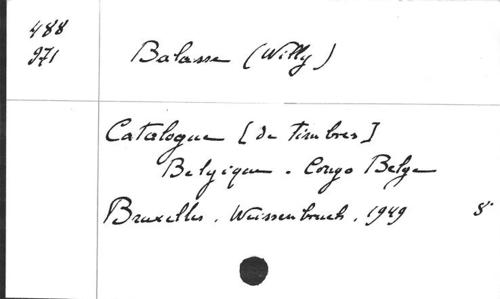 488
971
Balasse (Willy)
Catalogue [de timbres]
Belgique. Congo Belge
Bruxelles. Weissenbruch. 1949 8°